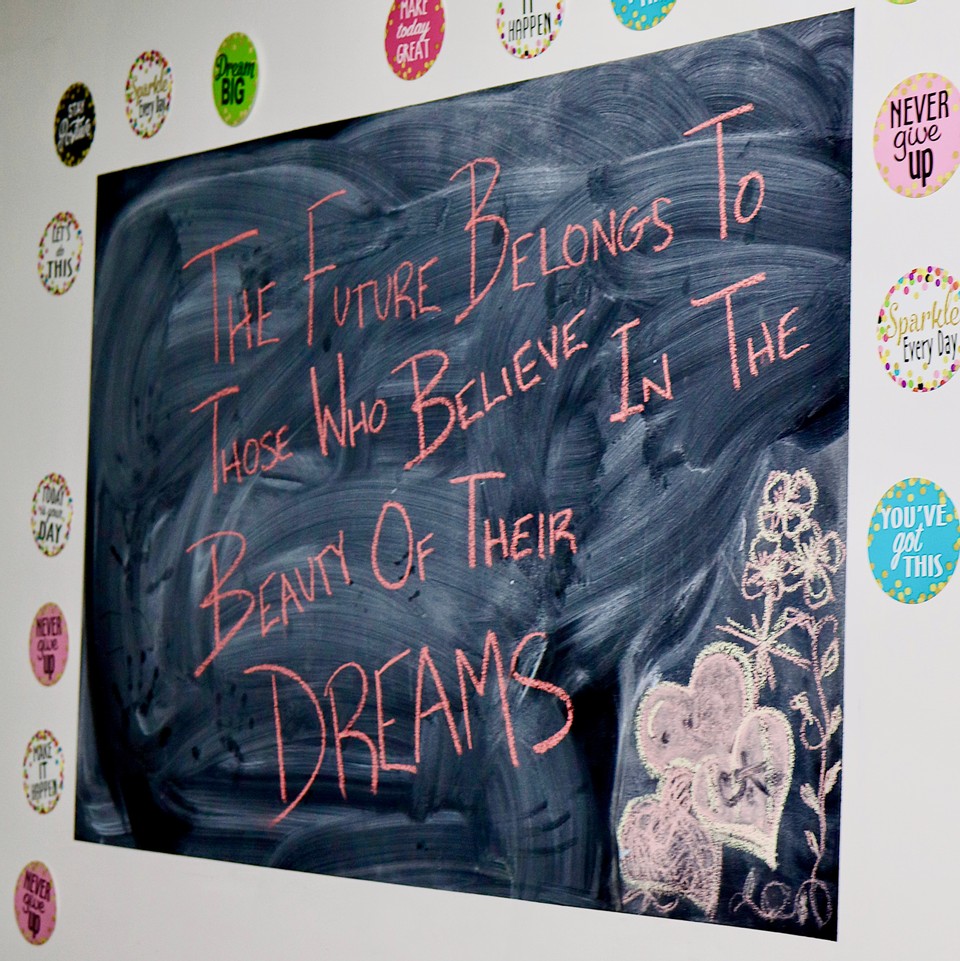 MAKE
today
GREAT
IT
HAPPEN
Dream
BIG
Sparkle
Every Day
STAY
Positive
NEVER
give
up
LET'S
do
THIS
THE FUTURE BELONGS TO
THOSE WHO BELIEVE IN THE
BEAUTY OF THEIR
DREAMS
Sparkle
Every Day
TODAY
is your
DAY
YOU'VE
got
THIS
NEVER
give
up
MAKE
IT
HAPPEN
NEVER
give
up